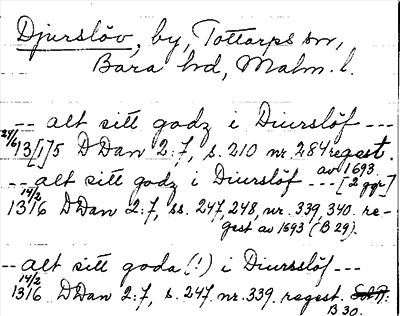 Djurslöv, by, Tottarps sn,
Bara hd, Malm. l.
-- alt sitt godz i Diurslöf ---
24/6 13[1]5 DDan 2:7, s. 210 nr. 284 regest.
av 1693.
-- alt sitt godz i Diurslöf --- [2 ggr]
14/2 1316 DDan 2:7, ss. 247, 248, nr. 339, 340. re-
gest av 1693 (B 29).
-- alt sitt goda (!) i Diursslöf ---
14/2 1316 DDan 2:7, s. 247. nr. 339. regest.
B 30.